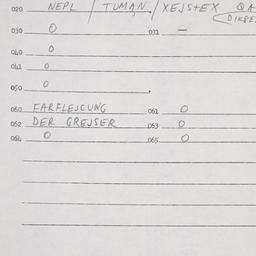 020 NEPL / TUMAN / XEJSTEX QA
030 0 031 —
040 0
041 0
050 0
060 FARFLEJCUNG 061 0
062 DER GREJSER 063 0
064 0 065 0